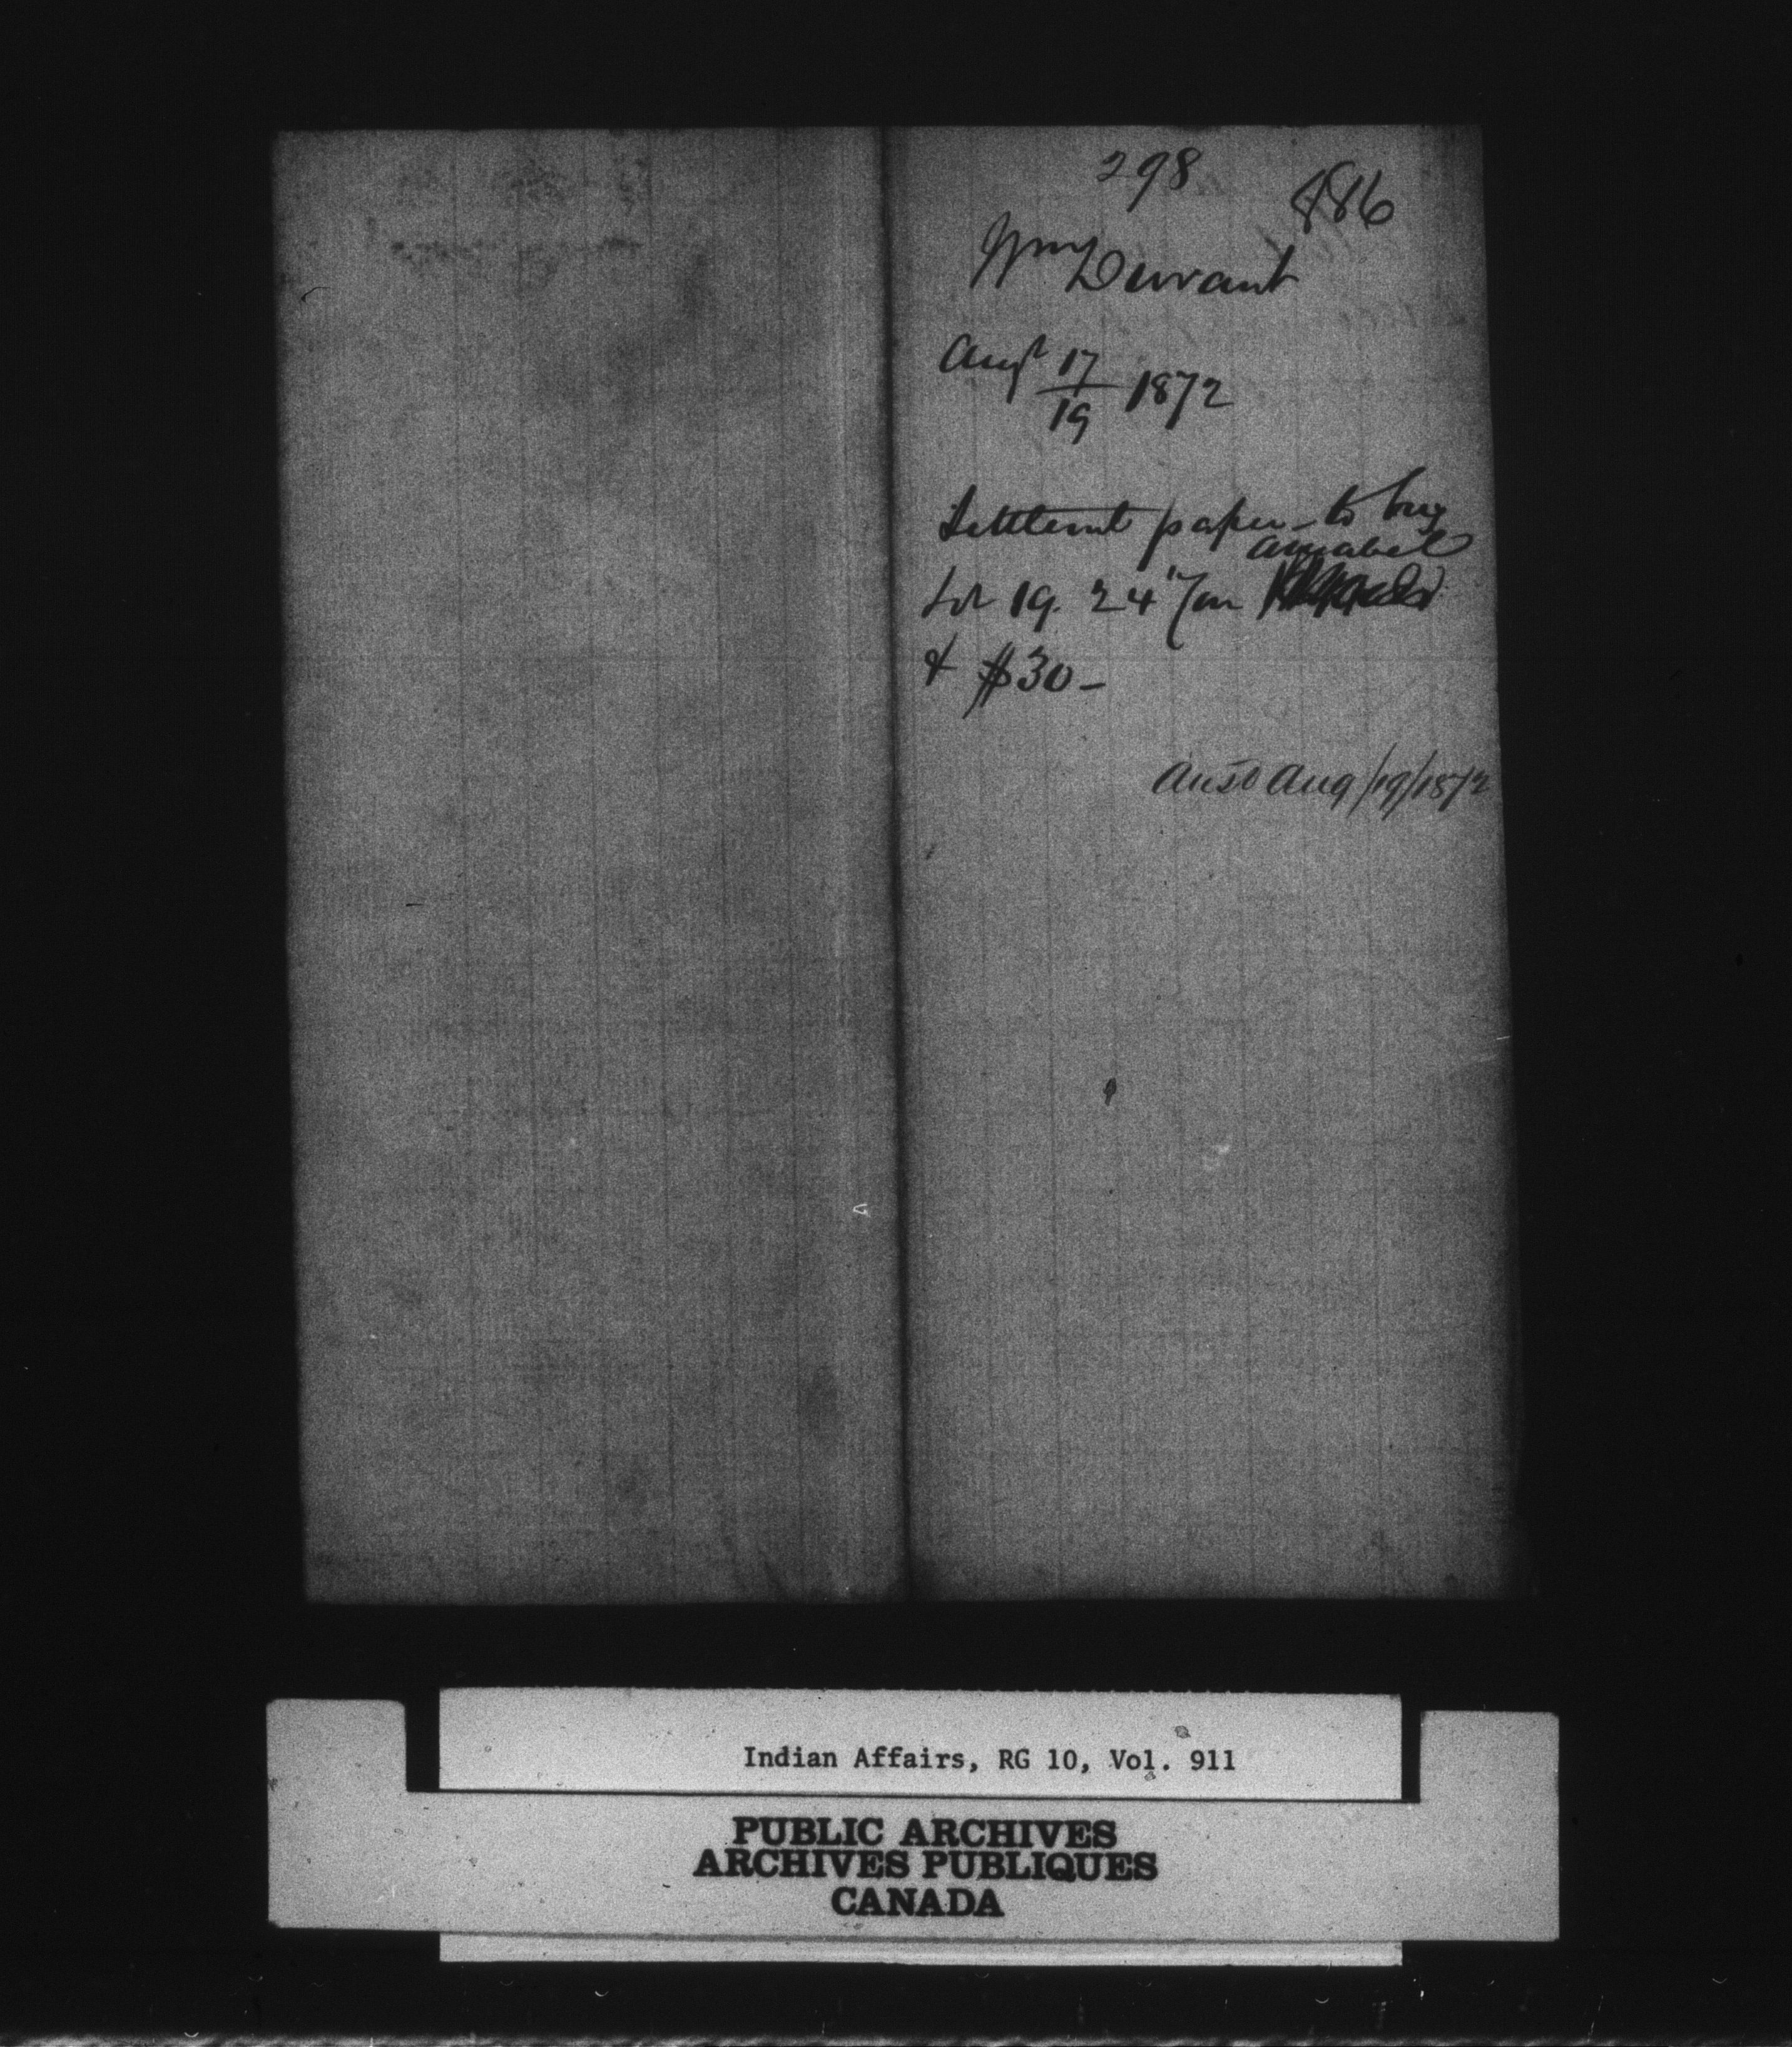 298
886
Wm Durrant
Augt 17/19 1872
Settlemt paper - to buy
Amabel
Lot 19. 24 Con
& $30 -
Ansd Aug/19/1872
Indian Affairs, RG 10, Vol. 911
PUBLIC ARCHIVES
ARCHIVES PUBLIQUES
CANADA